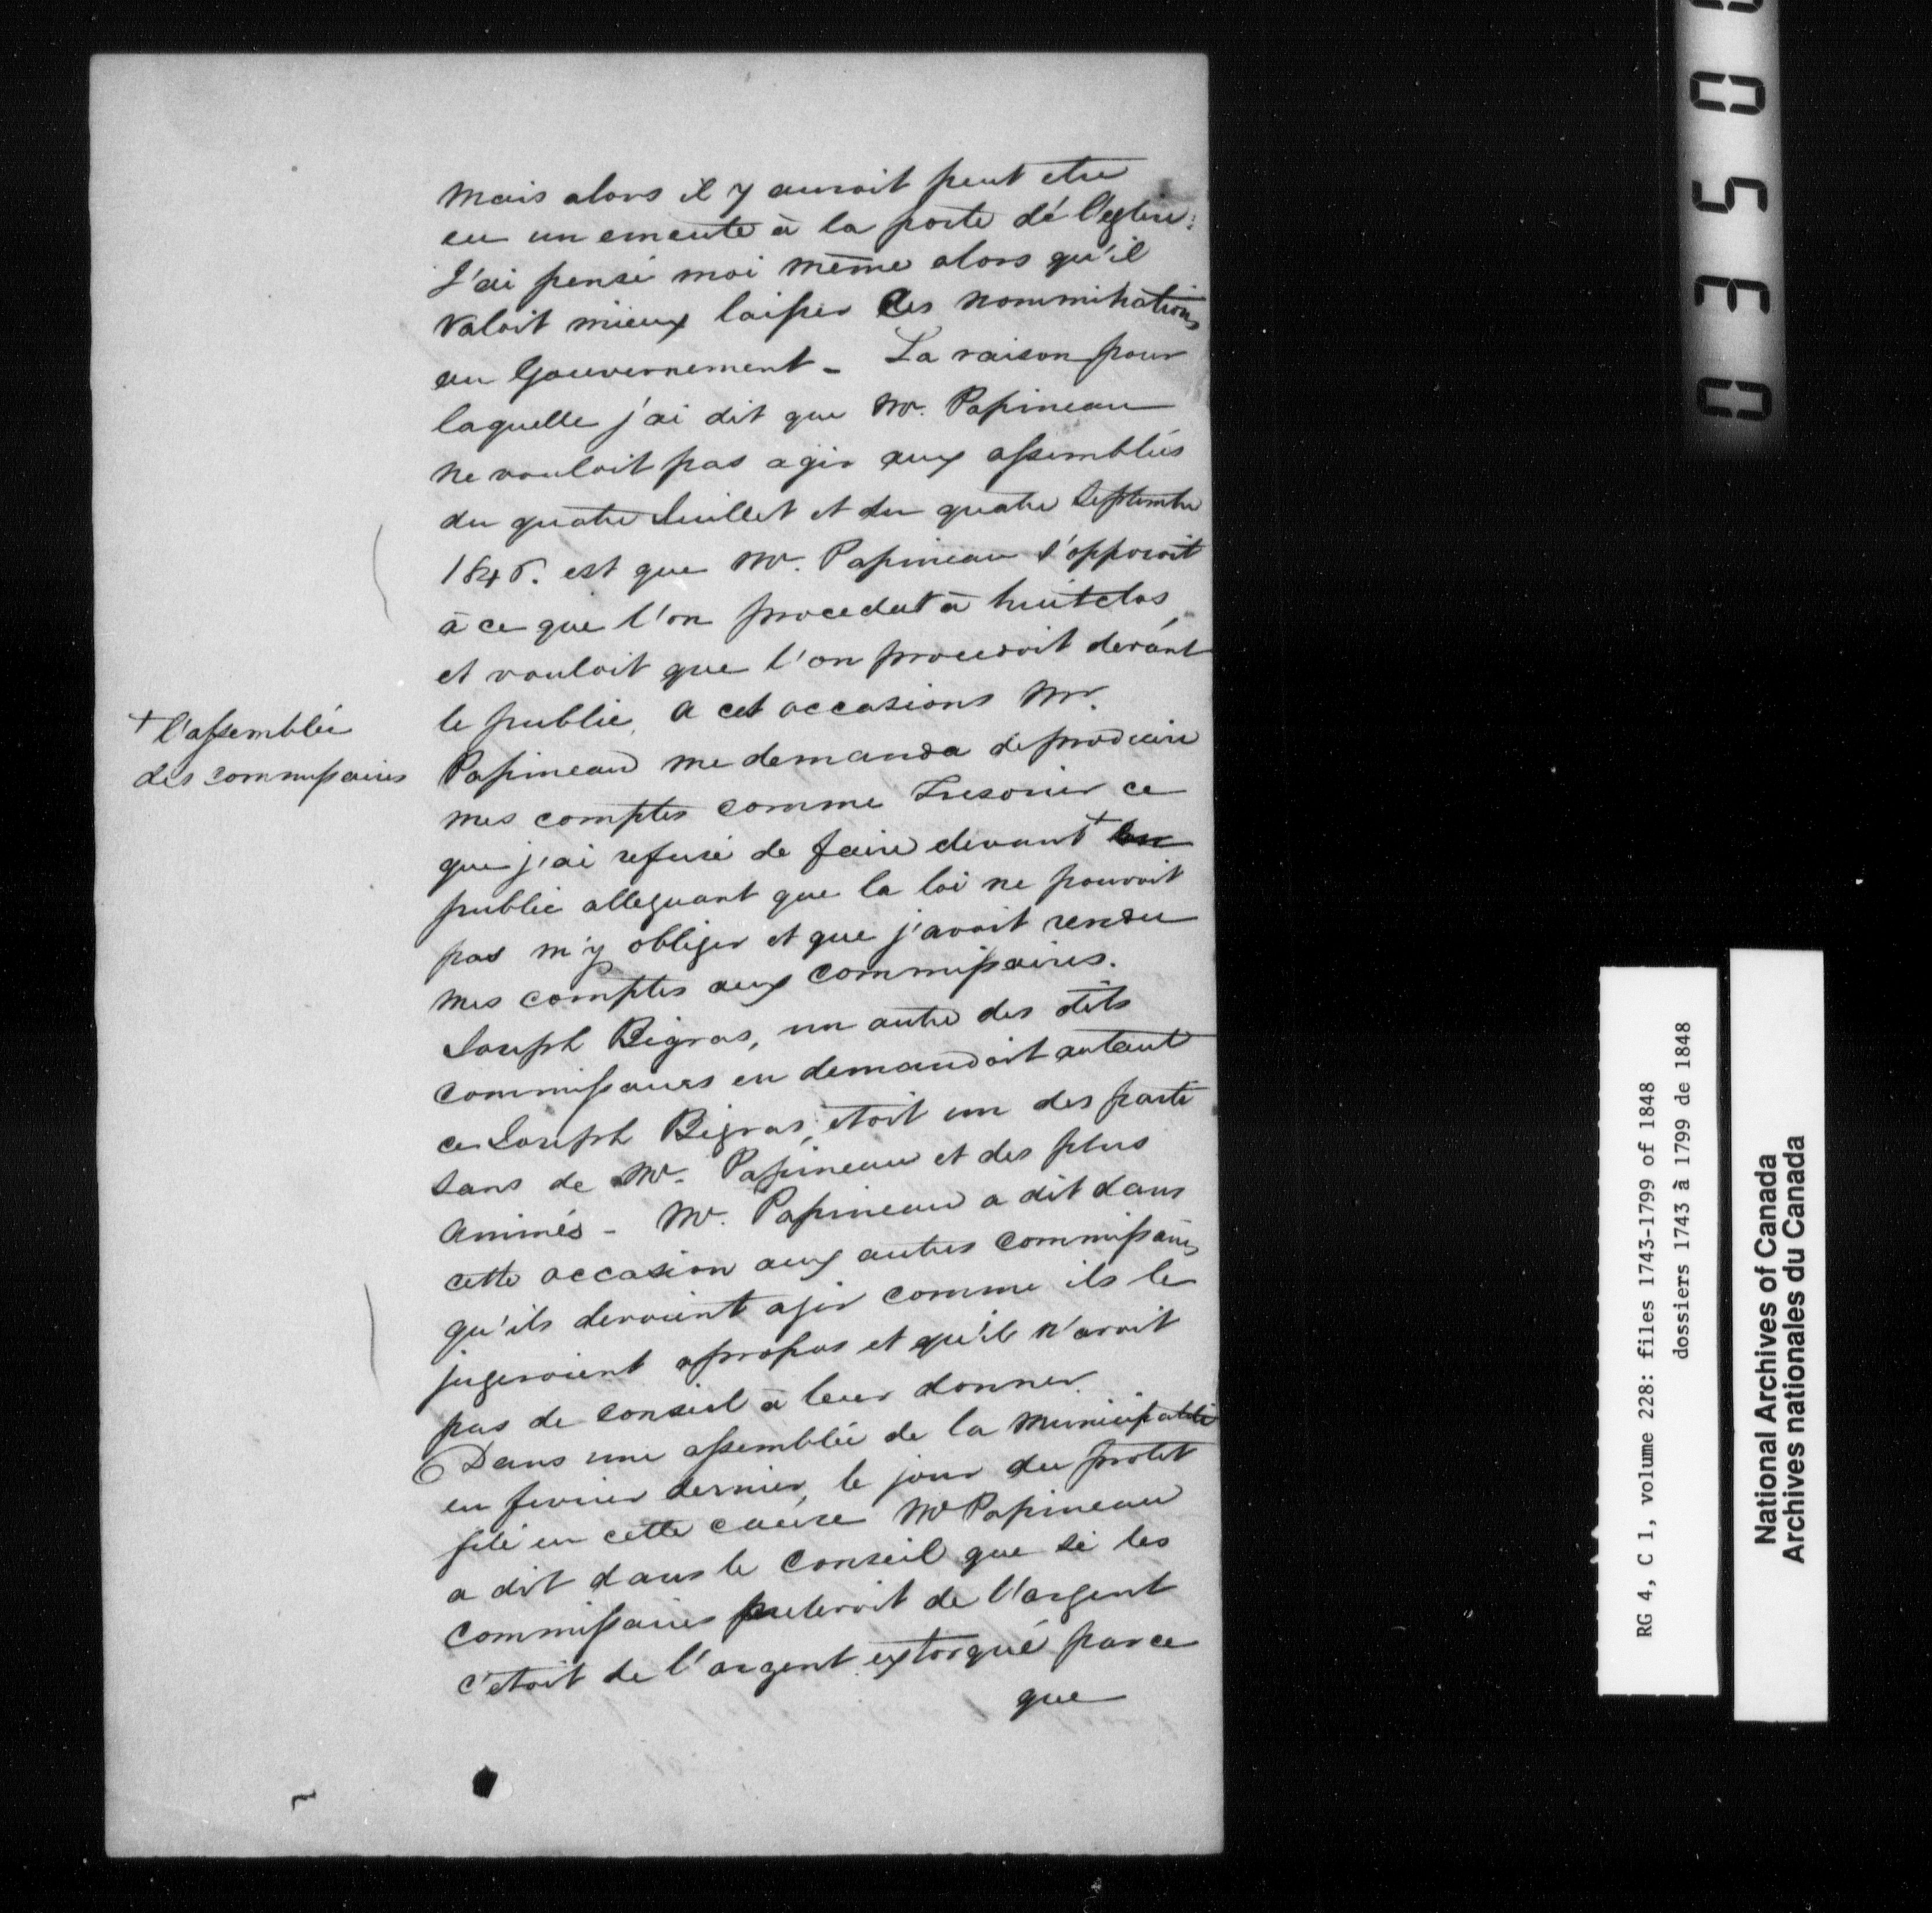 mais alors il y auroit peut etre
eu un emeute à la porte de l'eglise:
J'ai pensé moi même alors qu'il
valoit mieux laisser les nomminations
au Gouvernement - La raison pour
laquelle j'ai dit que Mr. Papineau
ne vouloit pas agir aux assemblées
du quatre Juillet et du quatre Septembre
1846. est que Mr. Papineau s'opposoit
à ce que l'on procedat à huit clos
et vouloit que l'on procedoit devant
le public, a cet occasions Mr.
Papineau me demanda de produire
mes comptes comme Tresorier ce
que j'ai refusé de faire devant +
+ l'assemblée
des commissaires
public alleguant que la loi ne pouvoit
pas m'y obliger et que j'avoit rendu
mes comptes aux Commissaires.
Joseph Bigras, un autre des dits
Commissaires en demandoit autant
ce Joseph Bigras, etoit un des parti
sans de Mr. Papineau et des plus
animés - Mr. Papineau a dit dans
cette occasion aux autres Commissaires
qu'ils devoient agir comme ils le
jugeroient apropos et qu'il n'avoit
pas de conseil à leur donner.
Dans une assemblée de la Municipalité
en fevrier dernier, le jour du protet
filé en cette cause Mr Papineau
a dit dans le Conseil que si les
Commissaires preteroit de l'argent
c'etoit de l'argent extorqué parce
que
0350
RG 4, C 1, volume 228: files 1743-1799 of 1848
dossiers 1743 à 1799 de 1848
National Archives of Canada
Archives nationales du Canada